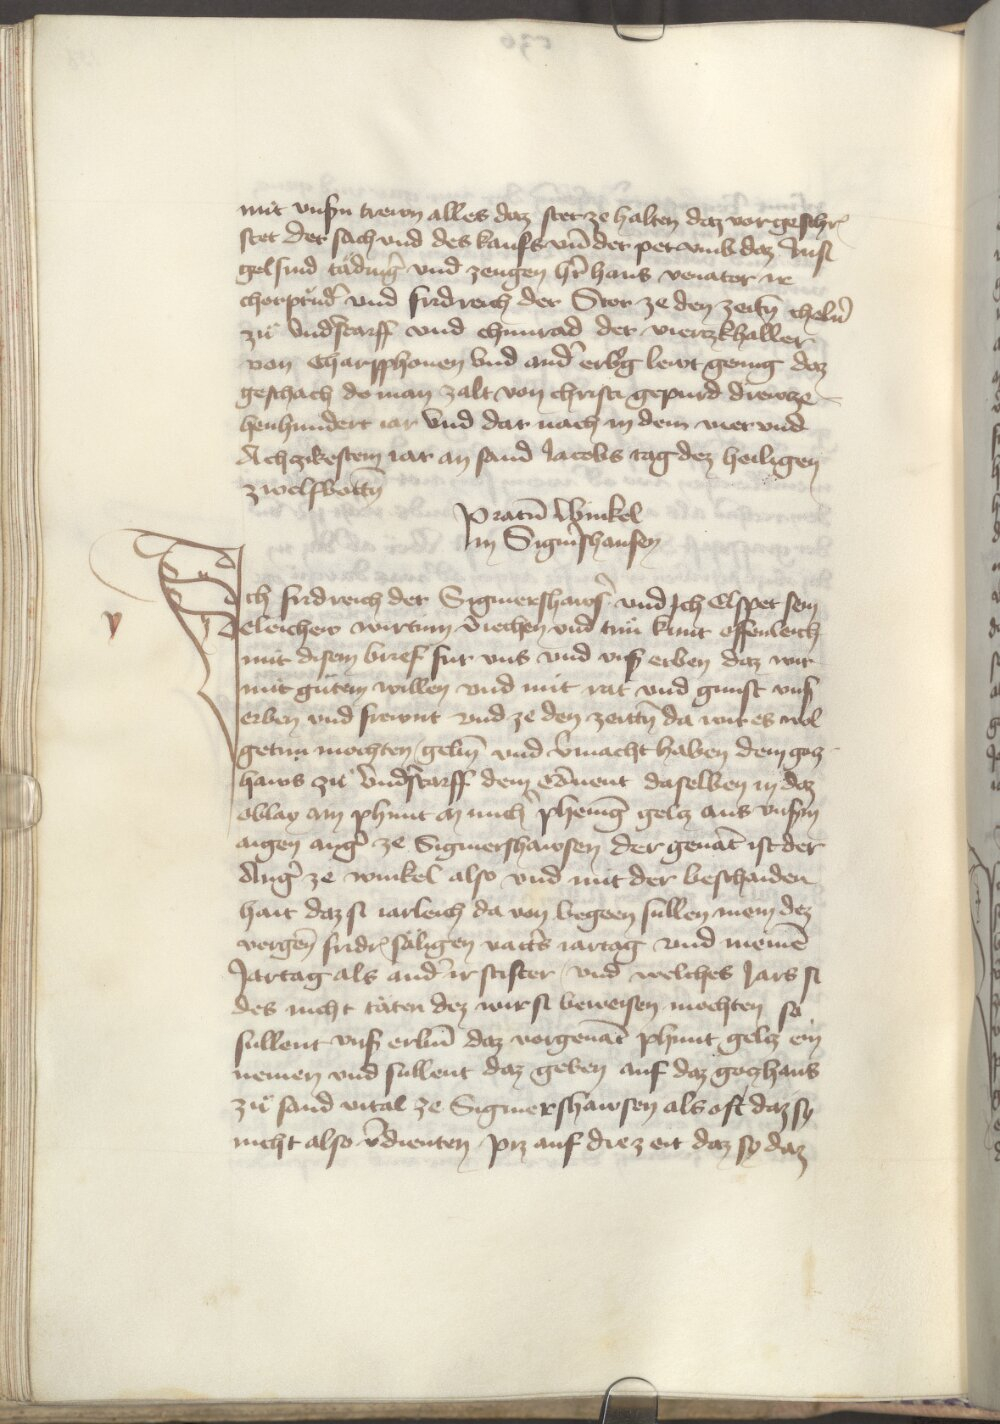 mit vnsn trewn alles daz stet ze halten daz vorgeschr
stet Der sach vnd des kaufs vnd der pet vmb daz Insi
gel sind täding vnd zeugen hr hans venator ir
chorprüd vnd fridreich der Stor ze den zeitn chelnr
zu Vnderstarff vnd chunrad der vierzkhaller
von Charpphouen vnd and erbg lewt genug daz
geschach do man zalt von christi gepurd drewze
henhundert iar vnd dar nach in dem vier vnd
Achzikestem iar an sand Jacobs tag dez heiligen
zwelfbottn
Pratu Winkel
in Sigmshausen
v
Ich fridreich der Sigmershaws vnd Ich Elspet sein
eleichew wirtinn veriechen vnd tun kunt offenleich
mit disem brief fur vns vnd vns erben daz wir
mit gutem willen vnd mit rat vnd gunst vns
erben vnd frewnt vnd ze den zeittn da wir es wol
getun mochten geben vnd vmacht haben dem gotz
haws zu Vnderstarff dem conuent daselben in daz
oblay ain phunt munch phenig geltz aus vnsm
aigen angr ze Sigmershawsen der genant ist der
Angr ze winkel also vnd mit der beschaiden
hait daz si iarleich da von begeen sullen mein dez
vorgen fridr säligen vaters iartag vnd meine
Jartag als and ir stifter vnd welches Jars si
des nicht täten dez wir si beweisen mochten so
sullent vns erbm daz vorgenat phunt geltz ein
nemen vnd sullent daz geben auf daz gotzhaus
zu sand vital ze Sigmershawsen als oft daz sy
nicht also vdienten piz auf die zeit daz sy daz